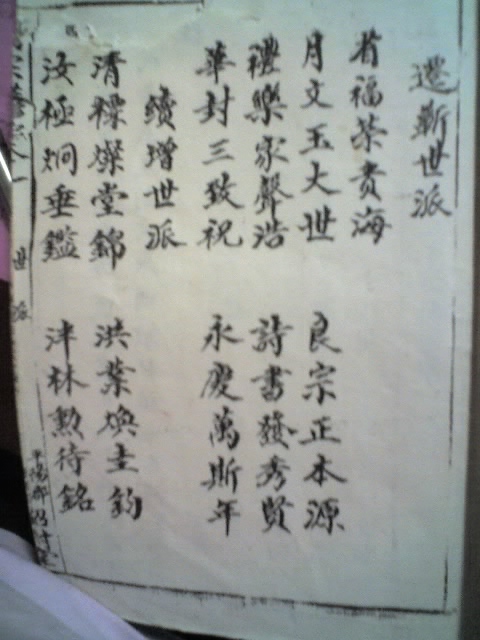 遷新世派
有福榮貴海
月文玉大世 良宗正本源
禮樂家聲浩 詩書發秀賢
華封三致祝 永慶萬斯年
續增世派
清標燦堂錦 洪業煥圭鈞
汝極炯垂鑑 津林勲待銘
世派
平陽郡